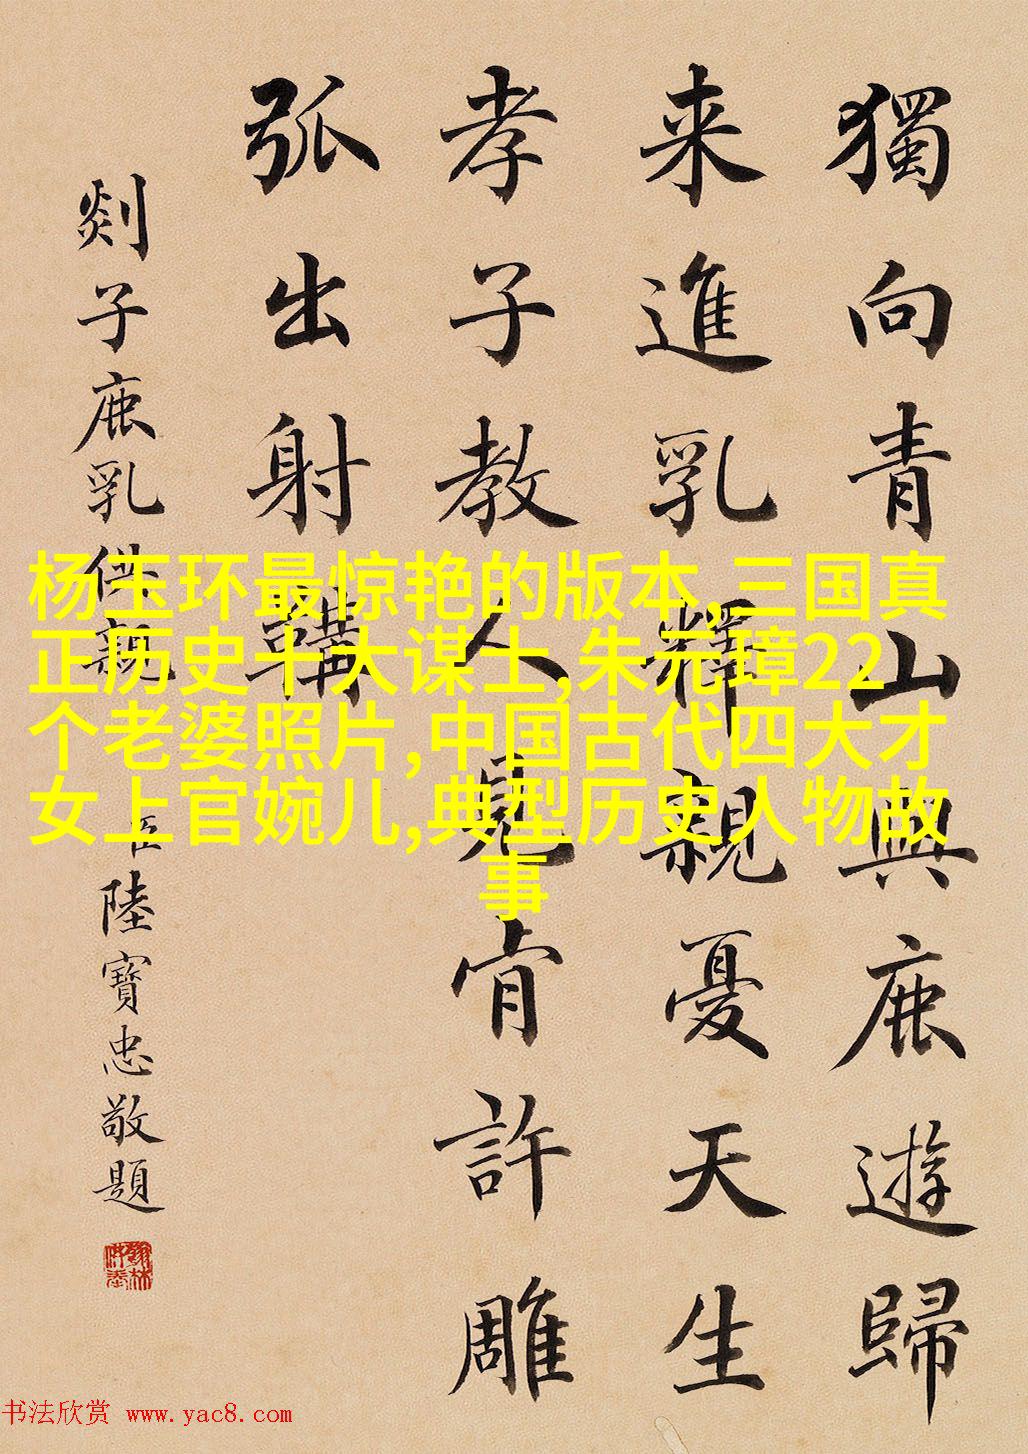 獨向青山與鹿遊歸
来進乳釋親憂天生
孝子教人見肯許雕
弧出射鞲
剡子鹿乳供親
臣陸寶忠敬題
杨玉环最惊艳的版本,三国真
正历史十大谋士,朱元璋22
个老婆照片,中国古代四大才
女上官婉儿,典型历史人物故
事
书法欣赏 www.yac8.com